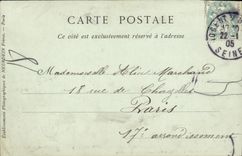 CARTE POSTALE
Ce côté est exclusivement réservé à l'adresse
22 -1
05
SEINE
Mademoiselle Aline Marchand
18 rue de Chazelles
Paris
17e arrondissement
Etablissements Photographiques de NEURDEIN Frères. — Paris